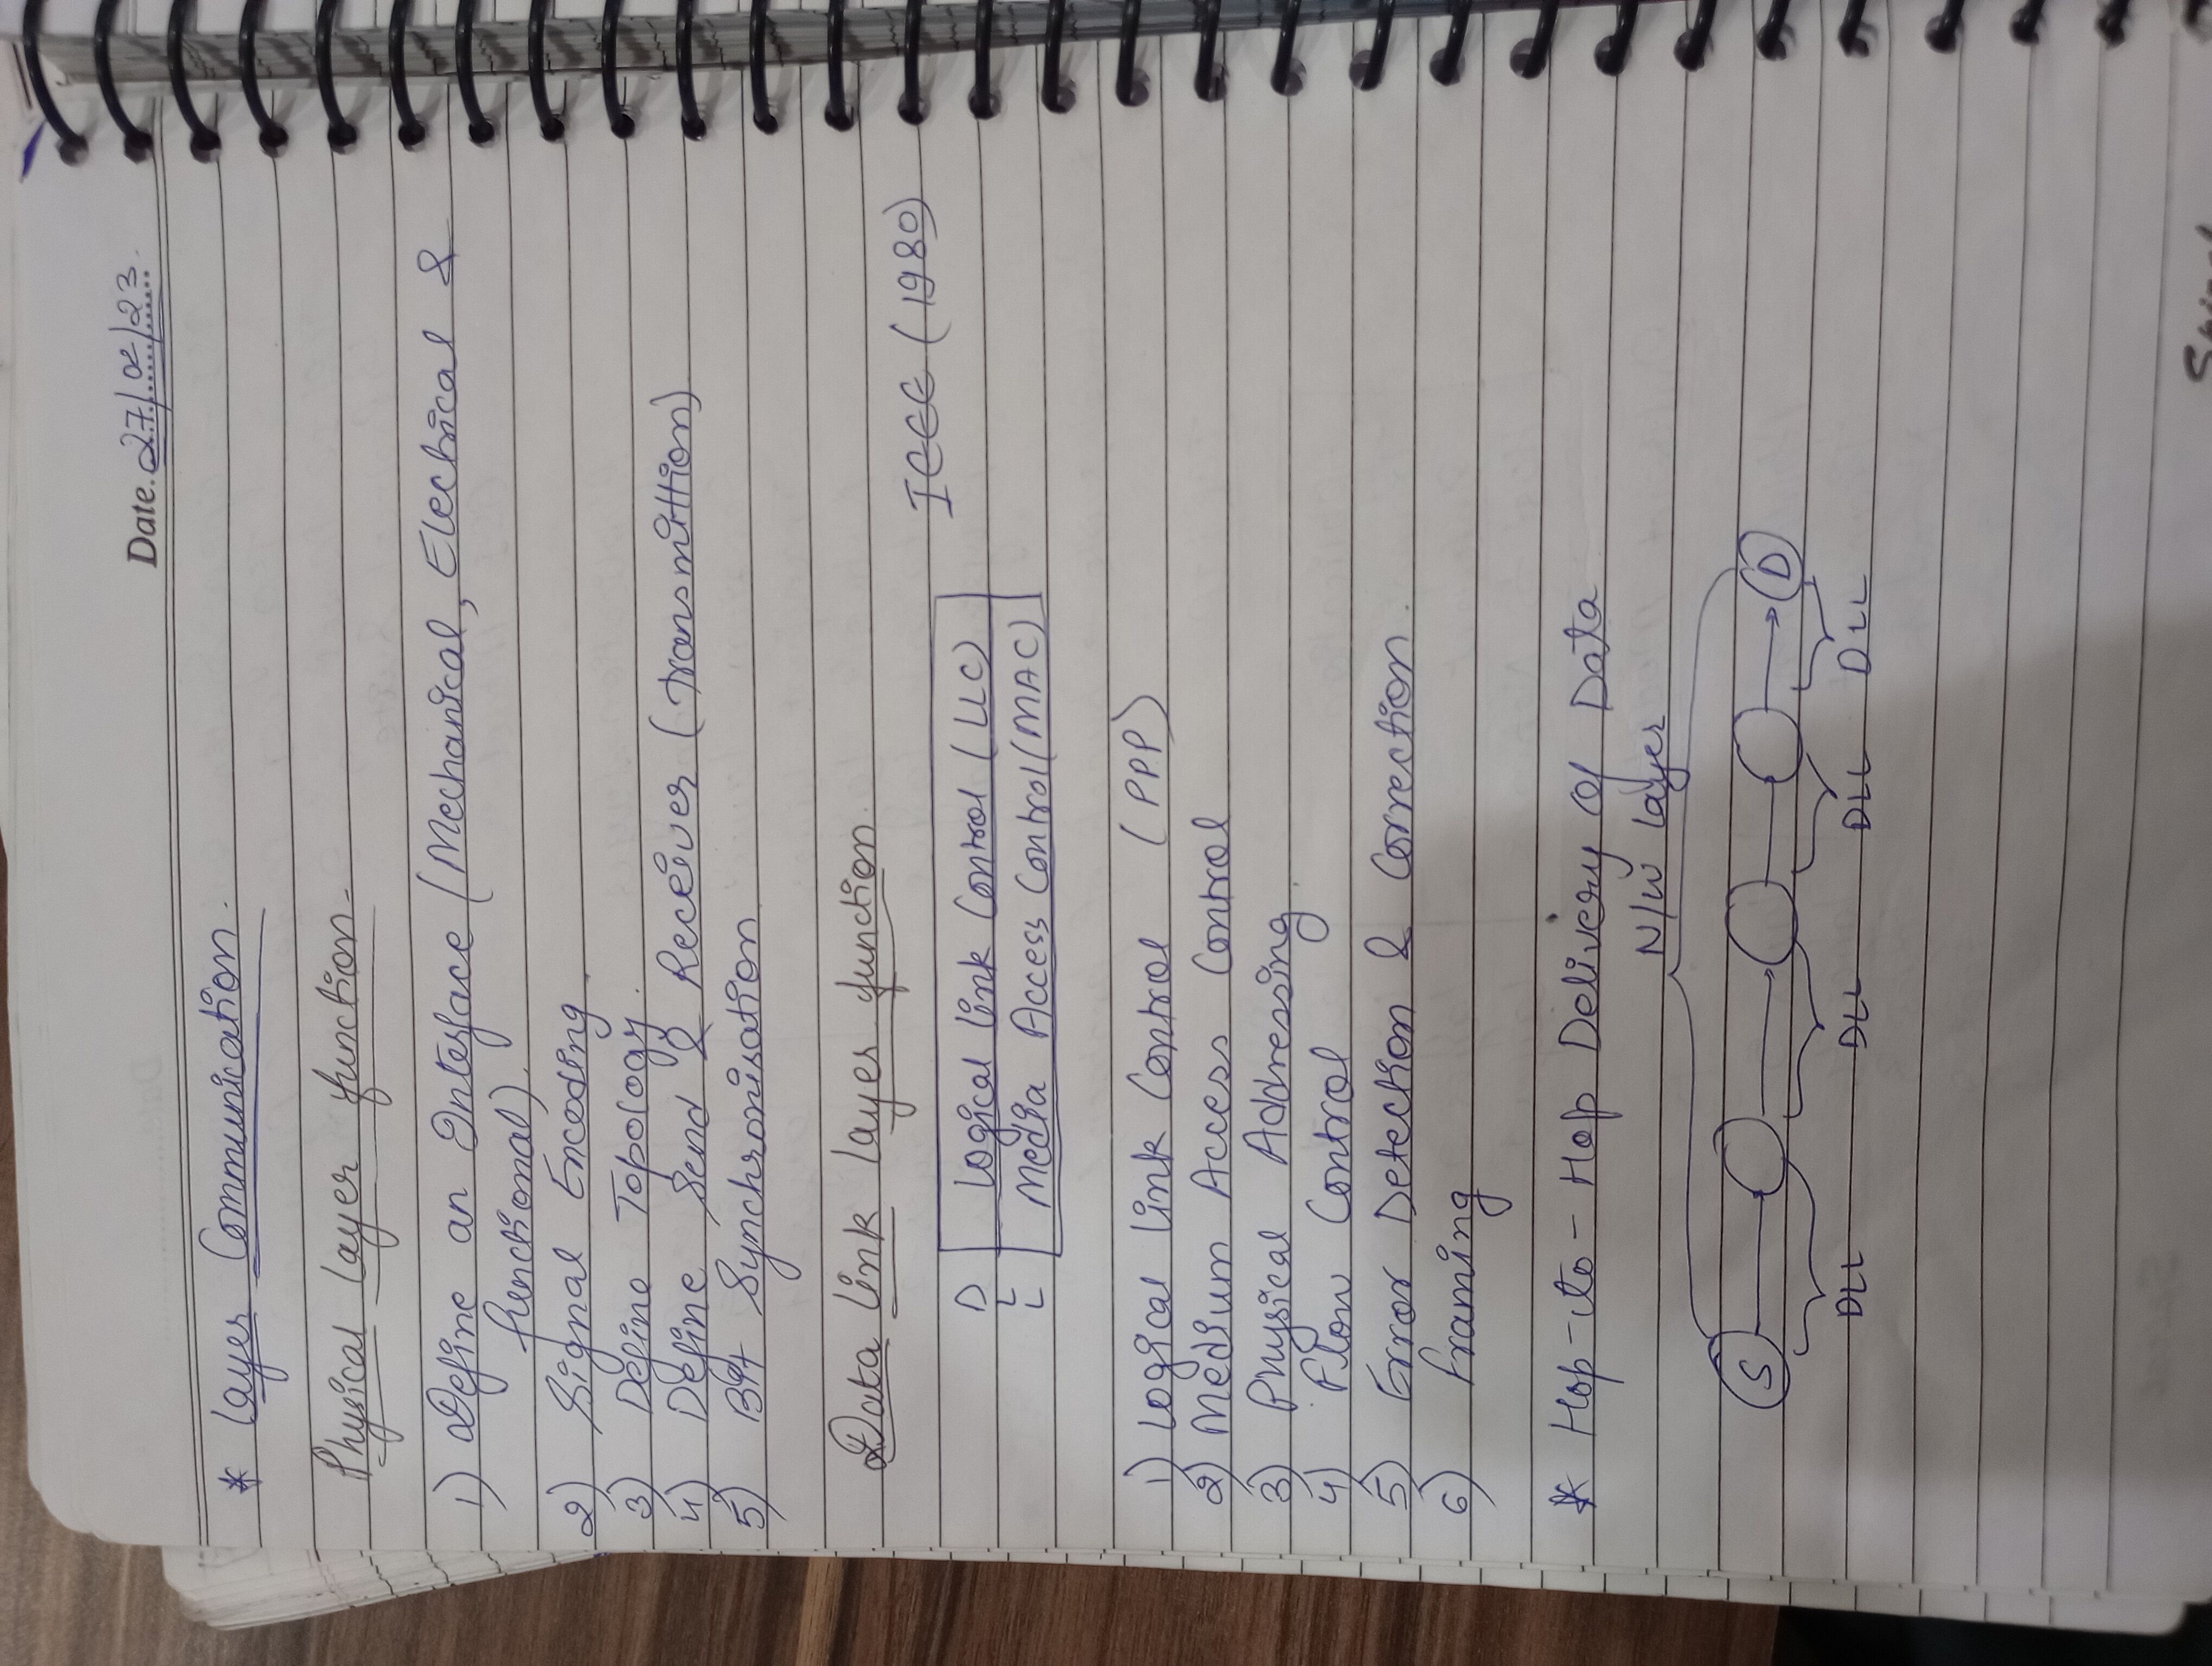 Date. 27/02/23.
* Layer Communication.
Physical layer function-
1) Define an Interface (Mechanical, Electrical &
functional).
2) Signal Encoding.
3) Define Topology.
4) Define Send & Receiver (transmittion)
5) Bit Synchronisation
Data link layer function.
IEEE (1980)
D Logical link Control (LLC)
L
L Media Access Control (MAC)
1) Logical link Control (PPP)
2) Medium Access Control
3) Physical Addressing.
4) Flow Control
5) Error Detection & Correction.
6) framing
* Hop-to-Hop Delivery Of Data
N/W layer
S D
DLL DLL DLL DLL